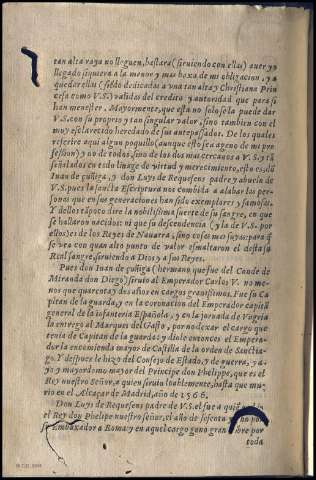 tan alta raya no lleguen, bastara (siruiendo con ellas) auer yo
llegado siquiera a la menor y mas baxa de mi obligacion, y a
quedar ellas (siẽdo dedicadas a vna tan alta y Christiana Prin
cesa como V.S.) validas del credito y autoridad que para si
han menester. Mayormente, que esta no solo se la puede dar
V.S. con su proprio y tan singular valor, sino tambien con el
muy esclarecido heredado de sus antepassados. De los quales
referire aqui algun poquillo (aunque esto sea ageno de mi pro
fession) y no de todos, sino de los mas cercanos a V.S. y tã
señalados en todo linage de virtud y merecimiento, esto es, dõ
Iuan de çuñiga, y don Luys de Requesens padre y abuelo de
V.S. pues la sancta Escriptura nos combida a alabar las perso
nas que en sus generaciones han sido exemplares y famosas.
Y dellos tãpoco dire la nobilissima suerte de su sangre, en que
se hallaron nacidos: ni que su descendencia (y la de V.S. por
ellos) es de los Reyes de Nauarra, sino cosas mas suyas: para q̃
se vea con quan alto punto de valor esmaltaron el desta su
Real sangre, siruiendo a Dios y a sus Reyes.
Pues don Iuan de çuñiga (hermano que fue del Conde de
Miranda don Diego) siruio al Emperador Carlos V. no me-
nos que quarenta y dos años en cargos grauissimos. Fue su Ca
pitan de la guarda, y en la coronacion del Emperador capitã
general de la infanteria Española, y en la jornada de Vngria
la entrego al Marques del Gasto, por no dexar el cargo que
tenia de Capitan de la guarda: y diole entonces el Empera-
dor la encomienda mayor de Castilla de la orden de Sanctia-
go. Y despues le hizo del Consejo de Estado, y de guerra, y a-
yo y mayordomo mayor del Principe don Phelippe, que es el
Rey nuestro señor, a quien seruio notablemente, hasta que mu-
rio en el Alcaçar de Madrid, año de 1566.
Don Luys de Requesens padre de V.S. el fue a quien
el Rey don Phelipe nuestro señor, el año de sesenta y por
su Embaxador a Roma: y en aquel cargo gano gran por
toda